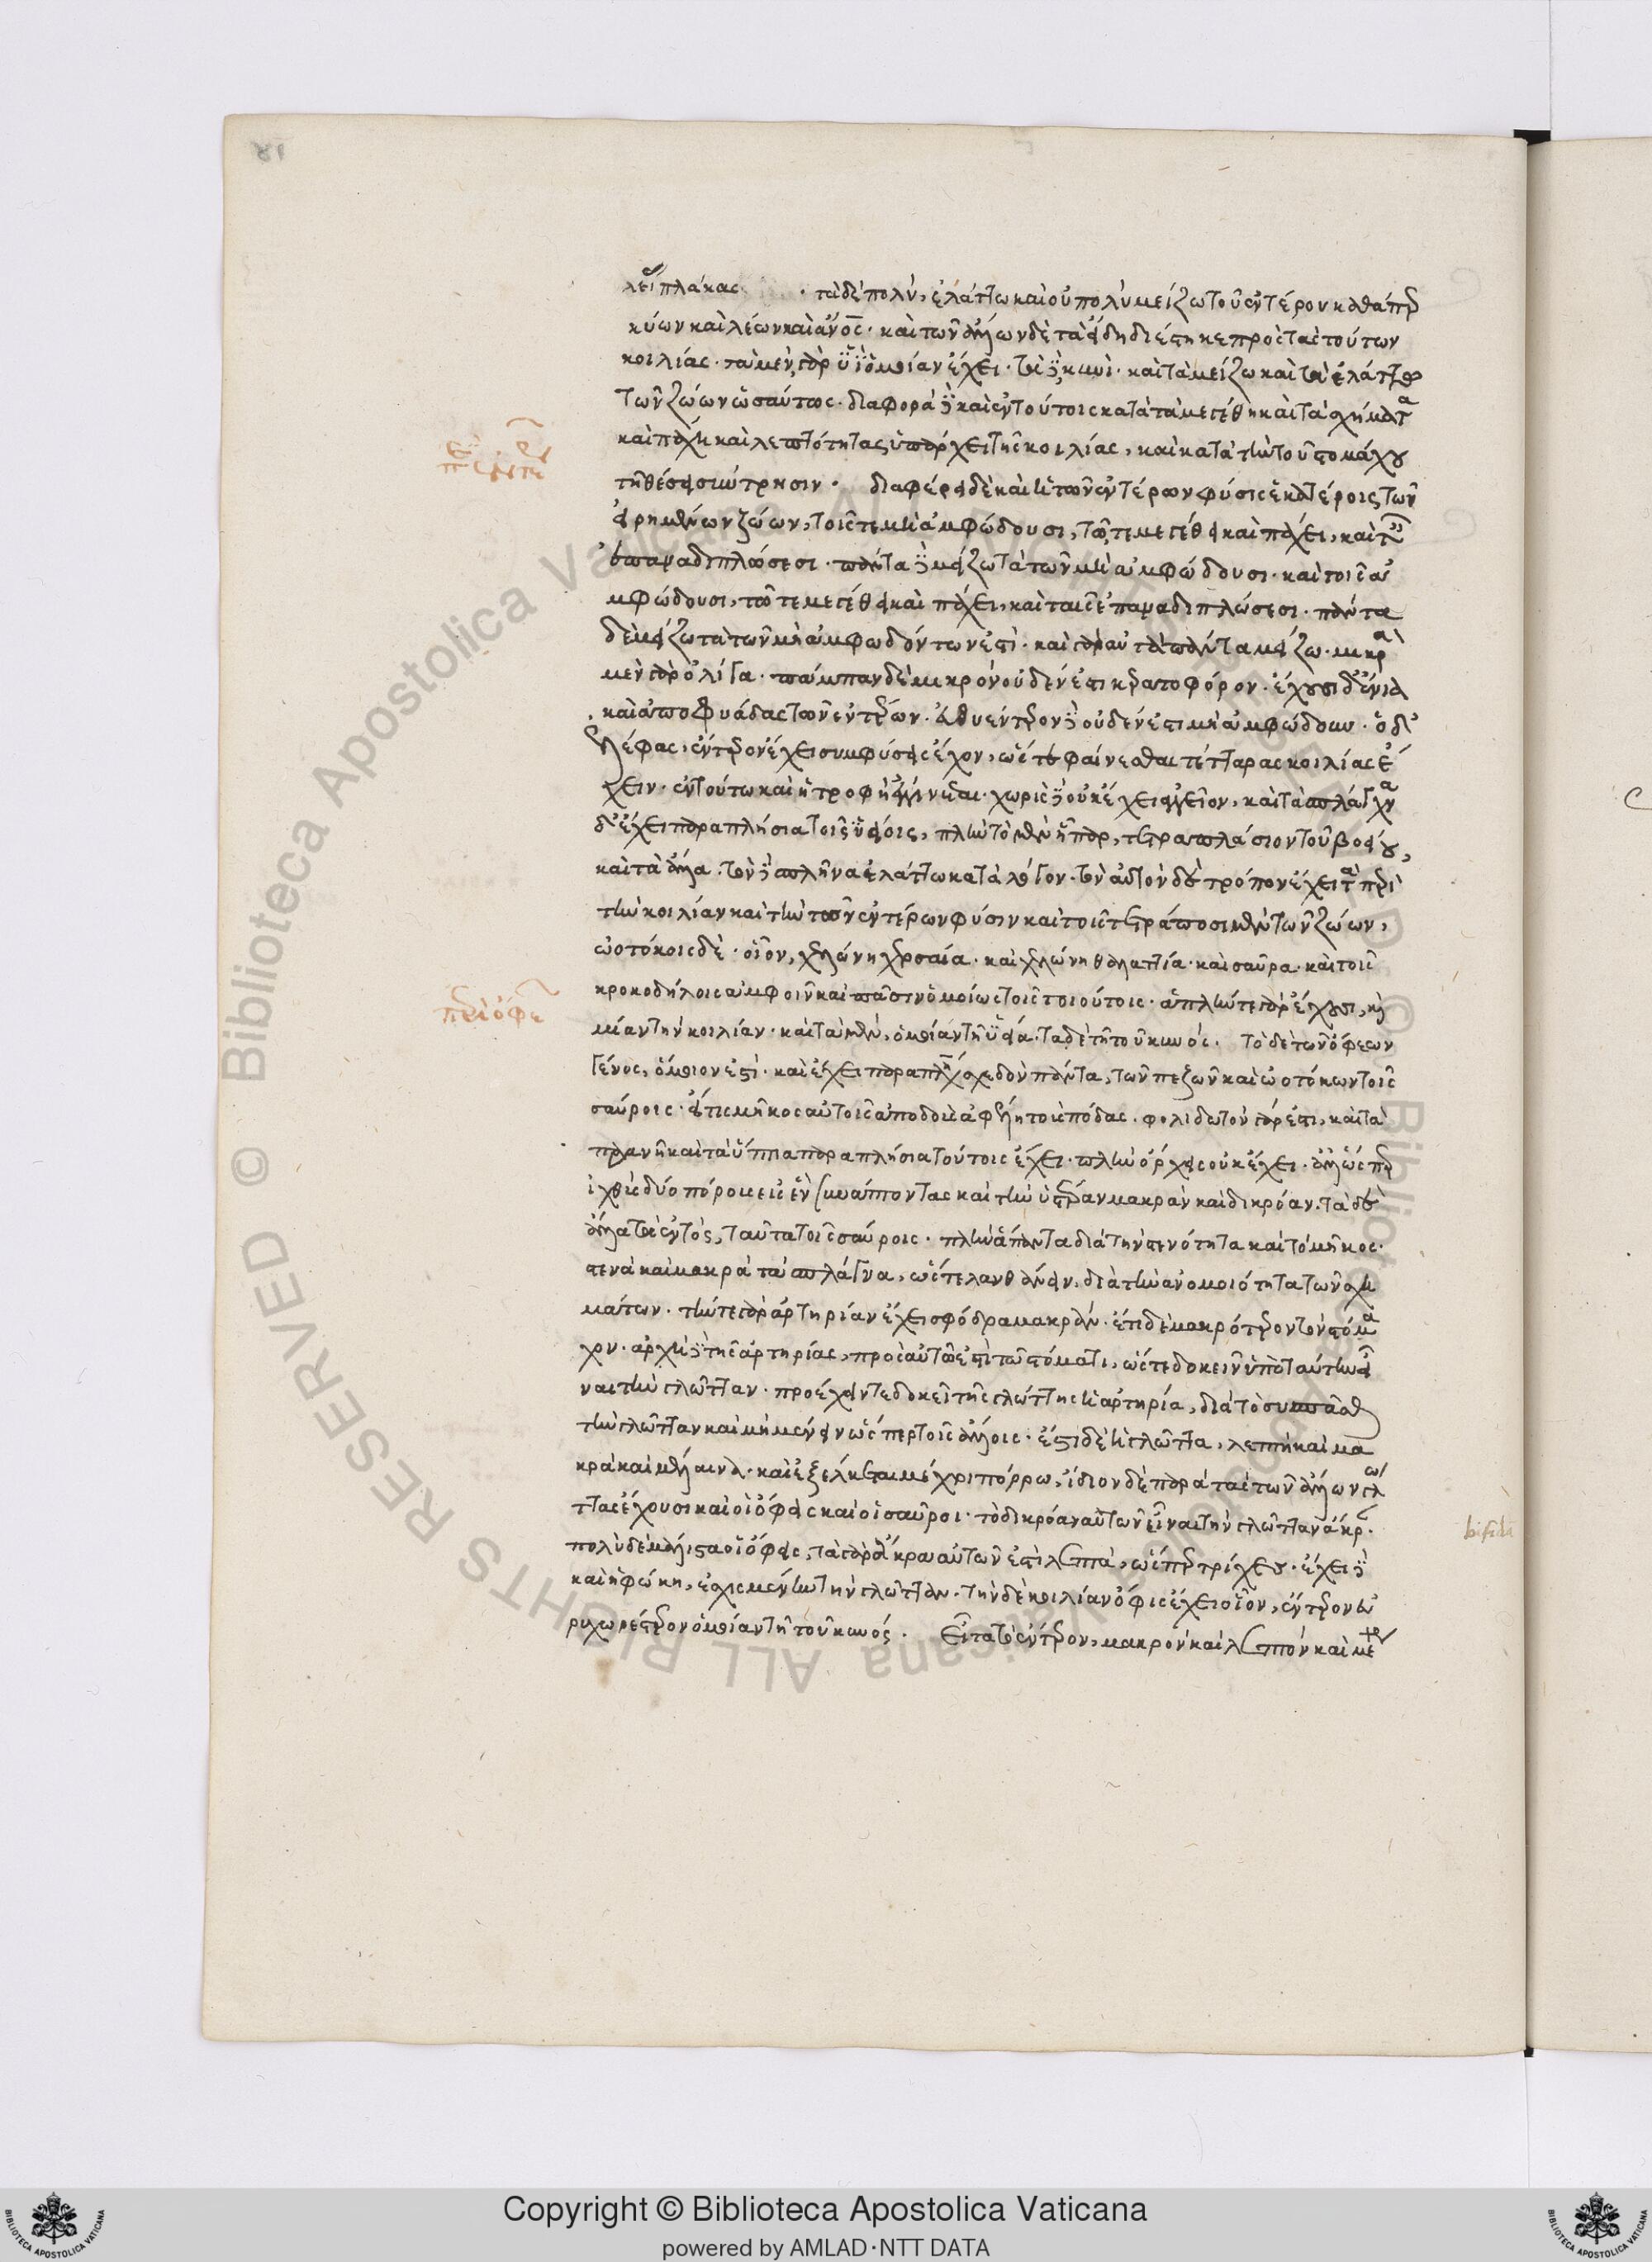 λείπλάκας · τὰ δὲ πολὺ, ἐλάττω καὶ οὐ πολὺ μείζω τοῦ ἐντέρου καθάπερ
κύων καὶ λέων καὶ ἄνος · καὶ τῶν ἄλλων δὲ τὰ εἴδη διέστηκε πρὸς τὰς τούτων
κοιλίας · τὰ μὲν γὰρ ὑῒ ὁμοίαν ἔχει · τὰ δὲ, κυνί · καὶ τὰ μείζω καὶ τὰ ἐλάττω
τῶν ζώων ὡσαύτως · διαφορὰ δὲ καὶ ἐν τούτοις κατὰ τὰ μεγέθη καὶ τὰ σχήματα
καὶ πάχη καὶ λεπτότητας ὑπάρχει τῆς κοιλίας, καὶ κατὰ τὴν τοῦ στομάχου
τῇ θέσει σύντρησιν · διαφέρει δὲ καὶ ἡ τῶν ἐντέρων φύσις ἑκατέροις τῶν
εἰρημένων ζώων, τοῖς τε μὴ ἀμφώδουσι, τῷ τε μεγέθει καὶ πάχει, καὶ ταῖς
ἐπαναδιπλώσεσι · πάντα δὲ μείζω τὰ τῶν μὴ ἀμφώδουσι · καὶ τοῖς ἀ
μφώδουσι, τῷ τε μεγέθει καὶ πάχει, καὶ ταῖς ἐπαναδιπλώσεσι · πάντα
δὲ μείζω τὰ τῶν μὴ ἀμφωδόντων ἐστὶ · καὶ γὰρ αὐτὰ πάντα μείζω · μικρὰ
μὲν γὰρ ὀλίγα · πάμπαν δὲ μικρὸν οὐδέν ἐστι κερατοφόρον · ἔχουσι δ' ἔνια
καὶ ἀποφυάδας τῶν ἐντέρων · εὐθυέντερον δὲ οὐδέν ἐστι μὴ ἀμφώδουν · ὁ δ' ἐ
λέφας, ἔντερον ἔχει συμφύσεις ἔχον, ὥστε φαίνεσθαι τέτταρας κοιλίας ἔ
χειν · ἐν τούτω καὶ ἡ τροφὴ ἐγγίνεται · χωρὶς δὲ οὐκ ἔχει ἀγγεῖον, καὶ τὰ σπλάγχνα
δ' ἔχει παραπλήσια τοῖς ὑείοις, πλὴν τὸ μὲν ἧπαρ, τετραπλάσιον τοῦ βοείου,
καὶ τὰ ἄλλα · τὸν δὲ σπλῆνα ἐλάττω κατὰ λόγον · τὸν αὐτὸν δὲ τρόπον ἔχει τὰ περὶ
τὴν κοιλίαν καὶ τὴν τῶν ἐντέρων φύσιν καὶ τοῖς τετράποσι μὲν τῶν ζώων,
ὠοτόκοις δὲ · οἷον, χελώνη χερσαία · καὶ χελώνη θαλαττία · καὶ σαῦρα · καὶ τοῖς
κροκοδήλοις ἀμφοῖν καὶ πᾶσιν ὁμοίως τοῖς τοιούτοις · ἁπλῆν τε γὰρ ἔχουσι, καὶ
μίαν τὴν κοιλίαν · καὶ τὰ μὲν, ὁμοίαν τῇ ὑεία · τὰ δὲ τῇ τοῦ κυνός · τὸ δὲ τῶν ὄφεων
γένος, ὅμοιον ἐστὶ · καὶ ἔχει παραπλήσια σχεδὸν πάντα, τῶν πεζῶν καὶ ὠοτόκων τοῖς
σαύροις · εἴ τις μῆκος αὐτοῖς ἀποδοὺς ἀφέλῃ τοὺς πόδας · φολιδωτὸν γάρ ἐστι, καὶ τὰ
πρανῆ καὶ τὰ ὕπτια παραπλήσια τούτοις ἔχει · πλὴν ὄρχεις οὐκ ἔχει · ἀλλ' ὥσπερ
ἰχθὺς δύο πόρους εἰς ἓν συνάπτοντας καὶ τὴν ὑστέραν μακρὰν καὶ δικρόαν · τὰ δὲ
ἄλλα τὰ ἐντός, ταῦτα τοῖς σαύροις · πλὴν ἅπαντα διὰ τὴν στενότητα καὶ τὸ μῆκος ·
στενὰ καὶ μακρὰ τὰ σπλάγχνα, ὥστε λανθάνειν, διὰ τὴν ἀνομοιότητα τῶν σχη
μάτων · τήν τε γὰρ ἀρτηρίαν ἔχει σφόδρα μακρὰν · ἔτι δὲ μακρότερον τὸν στόμα
χον · ἀρχὴ δὲ τῆς ἀρτηρίας, πρὸς αὐτῷ ἐστὶ τῷ στόματι, ὥστε δοκεῖν ὑπὸ ταύτην εἶ
ναι τὴν γλῶτταν · προέχειν τε δοκεῖ τῆς γλώττης ἡ ἀρτηρία, διὰ τὸ συσπᾶσθαι
τὴν γλῶτταν καὶ μὴ μένειν ὥσπερ τοῖς ἄλλοις · ἔστι δὲ ἡ γλῶττα, λεπτὴ καὶ μα
κρὰ καὶ μέλαινα · καὶ ἐξέλκεται μέχρι πόρρω, ἴδιον δὲ παρὰ τὰς τῶν ἄλλων γλώ
ττας ἔχουσι καὶ οἱ ὄφεις καὶ οἱ σαῦροι · τὸ δικρόαν αὐτῶν εἶναι τὴν γλῶτταν ἄκραν ·
πολὺ δὲ μάλιστα οἱ ὄφεις, τὰ γὰρ ἄκρα αὐτῶν ἐστὶ λεπτά, ὥσπερ τρίχες · ἔχει δὲ
καὶ ἡ φώκη, ἐσχισμένην τὴν γλῶτταν · τὴν δὲ κοιλίαν ὄφις ἔχει οἷον, ἔντερον εὐ
ρυχωρέστερον ὁμοίαν τῇ τοῦ κυνός · Εἶτα τὸ ἔντερον, μακρὸν καὶ λεπτὸν καὶ μέ
περὶ ὄφε
bifida
Copyright © Biblioteca Apostolica Vaticana
powered by AMLAD·NTT DATA